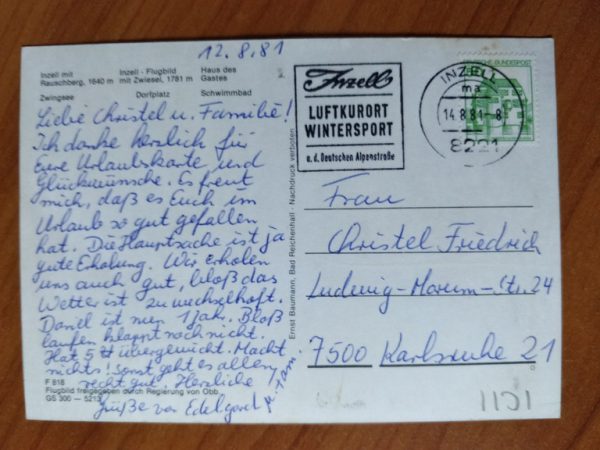 12.8.81
Inzell mit
Rauschberg, 1640 m
Inzell - Flugbild
mit Zwiesel, 1781 m
Haus des
Gastes
Zwingsee
Dorfplatz
Schwimmbad
Liebe Christel u. Familie!
Ich danke herzlich für
Eure Urlaubskarte und
Glückwünsche. Es freut
mich, daß es Euch im
Urlaub so gut gefallen
hat. Die Hauptsache ist ja
gute Erholung. Wir erholen
uns auch gut, bloß das
Wetter ist zu wechselhaft.
Daniel ist nun 1 Jahr. Bloß
laufen klappt noch nicht.
Hat 5 ℔ übergewicht. Macht
nichts! sonst geht es allen
recht gut. Herzliche
Grüße von Edelgard
u. Fam.
F 818
Flugbild freigegeben durch Regierung von Obb.
GS 300 — 5213
Ernst Baumann, Bad Reichenhall · Nachdruck verboten
Inzell
LUFTKURORT
WINTERSPORT
a. d. Deutschen Alpenstraße
INZELL
ma
14.8.81-8
8221
DEUTSCHE BUNDESPOST
Frau
Christel Friedrich
Ludwig-Marum-Str. 24
7500 Karlsruhe 21